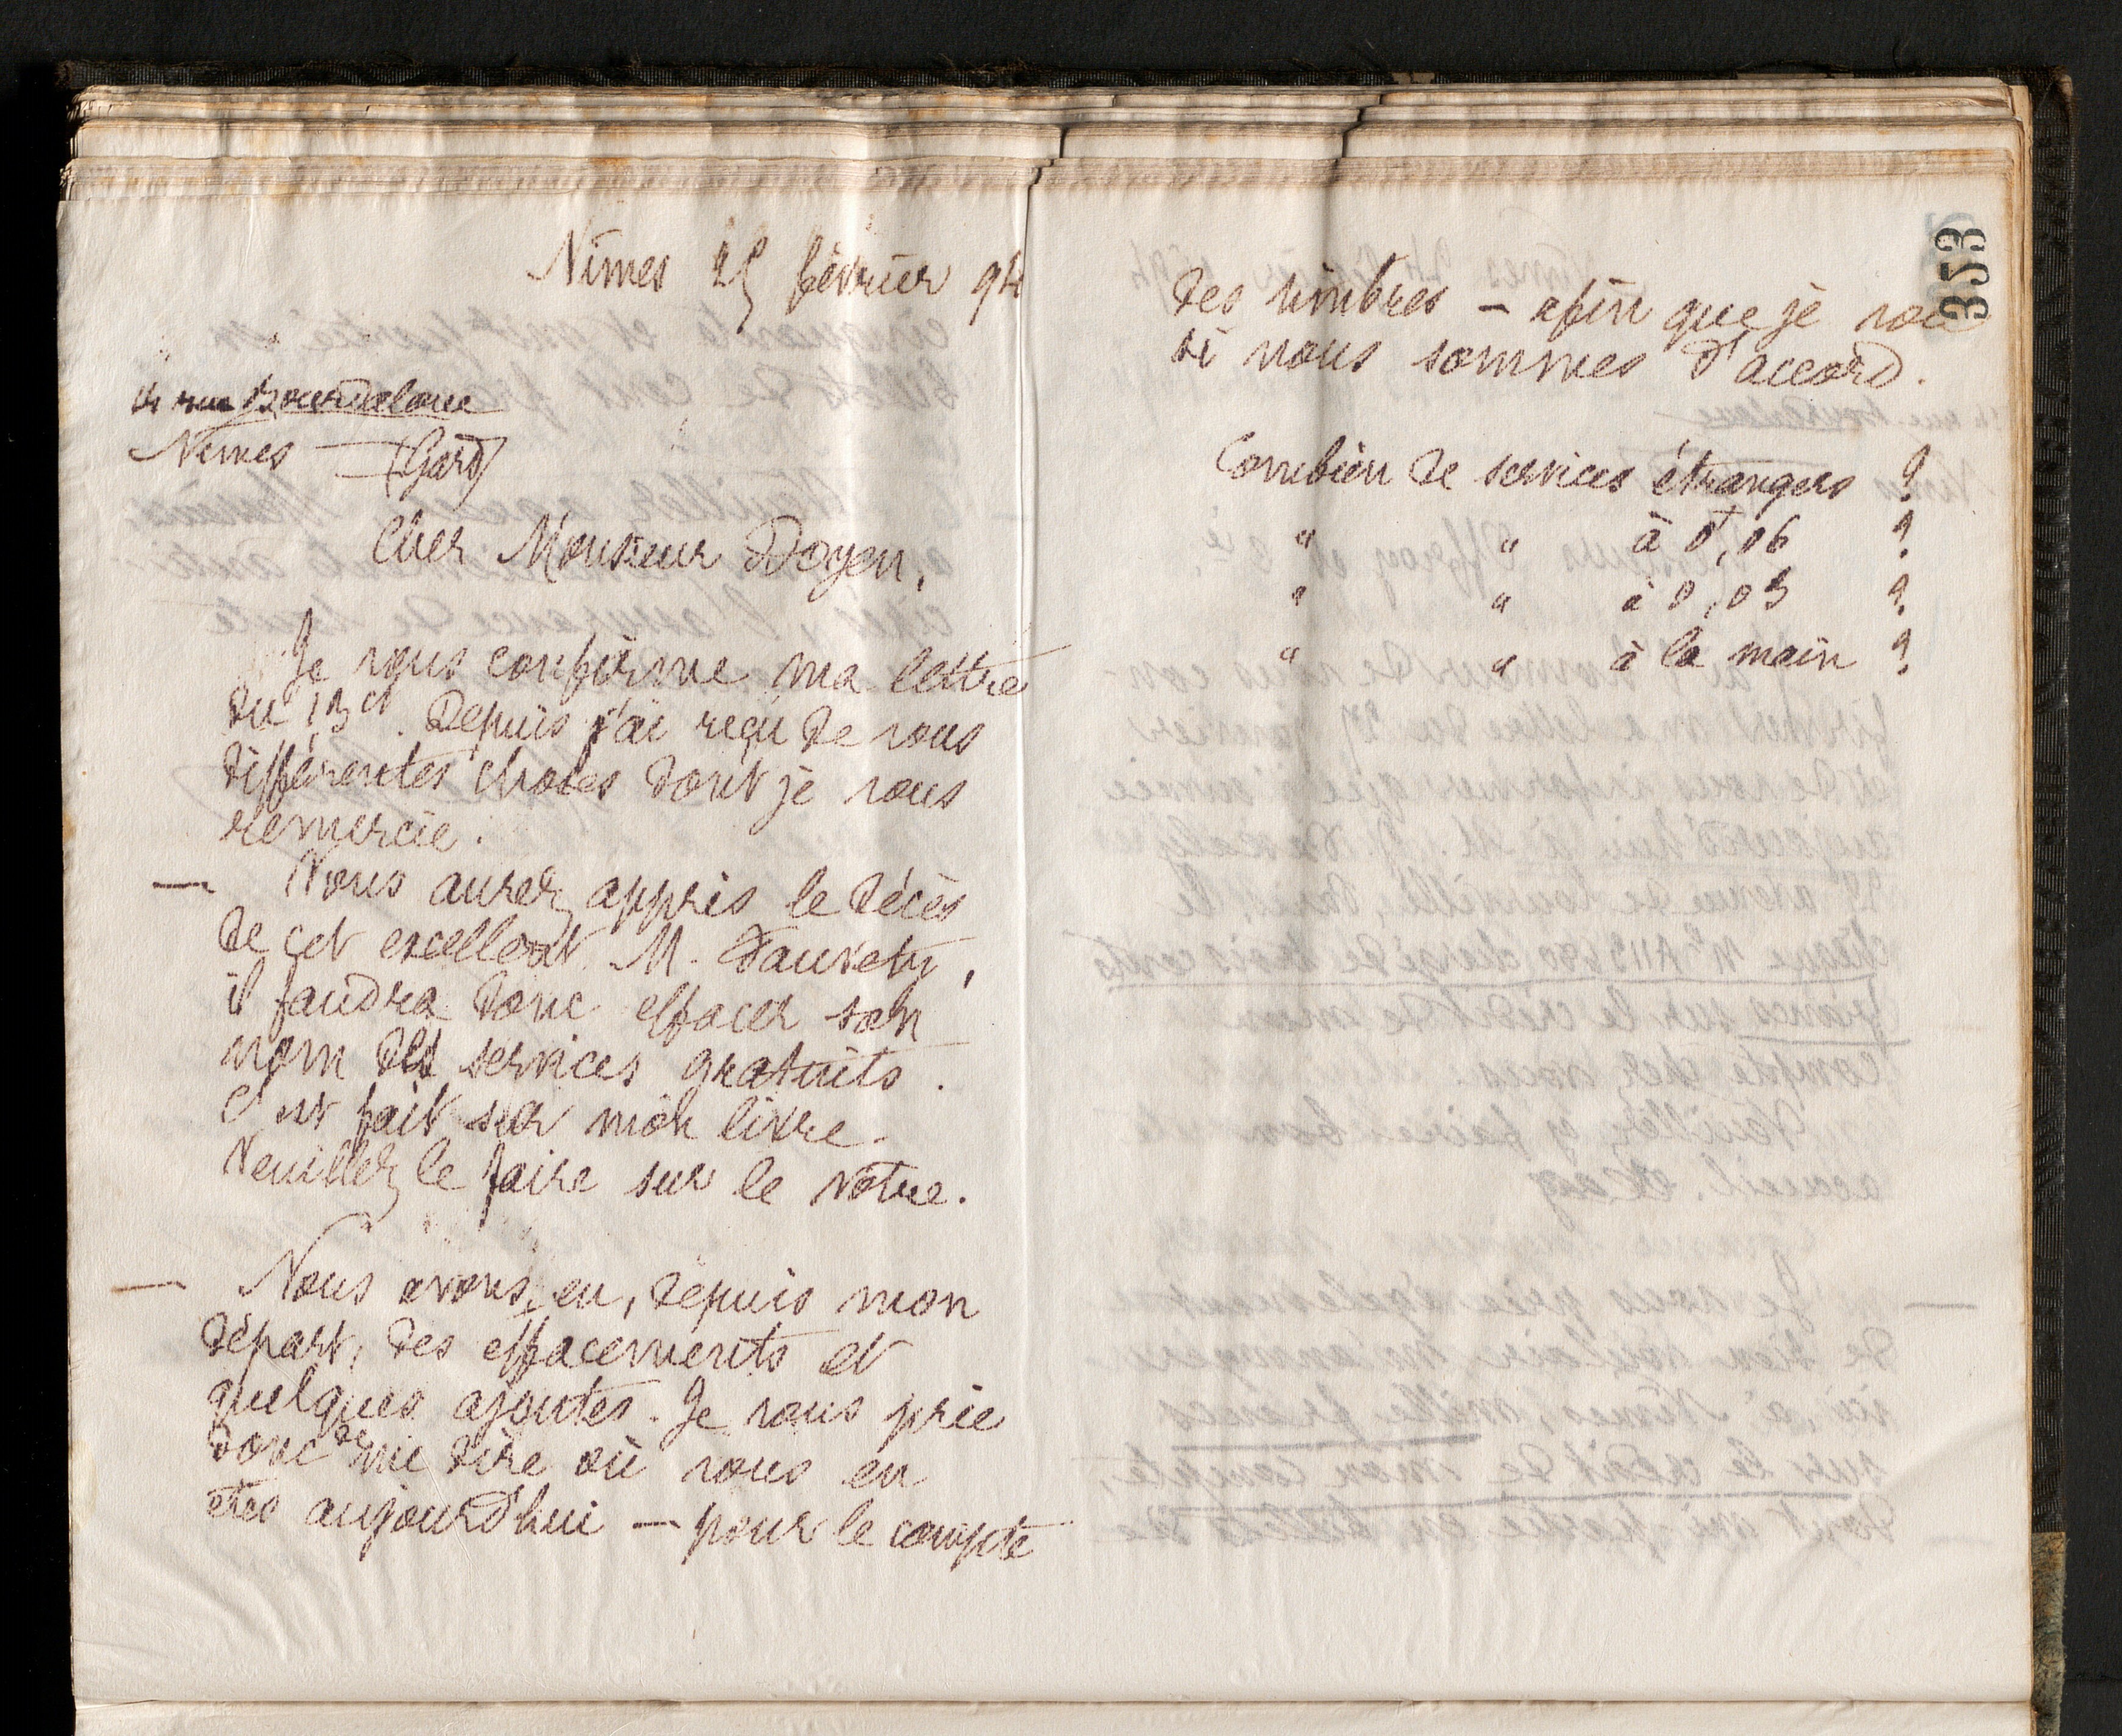 Nîmes 25 février 94
14 rue Bourdaloue
Nîmes — (Gard)
Cher Monsieur Doyen,
Je vous confirme ma lettre
du 13 ct. Depuis j'ai reçu de vous
différentes choses dont je vous
remercie.
— Vous aurez appris le décès
de cet excellent M. Fauvety,
il faudra donc effacer son
nom des services gratuits.
C'est fait sur mon livre.
Veuillez le faire sur le vôtre.
— Nous avons eu, depuis mon
départ, des effacements et
quelques ajoutes. Je vous prie
donc de me dire où vous en
êtes aujourd'hui — pour le compte
des timbres — afin que je voie
si nous sommes d'accord.
Combien de services étrangers ?
" " à 0,06 ?
" " à 0,03 ?
" " à la main ?
353